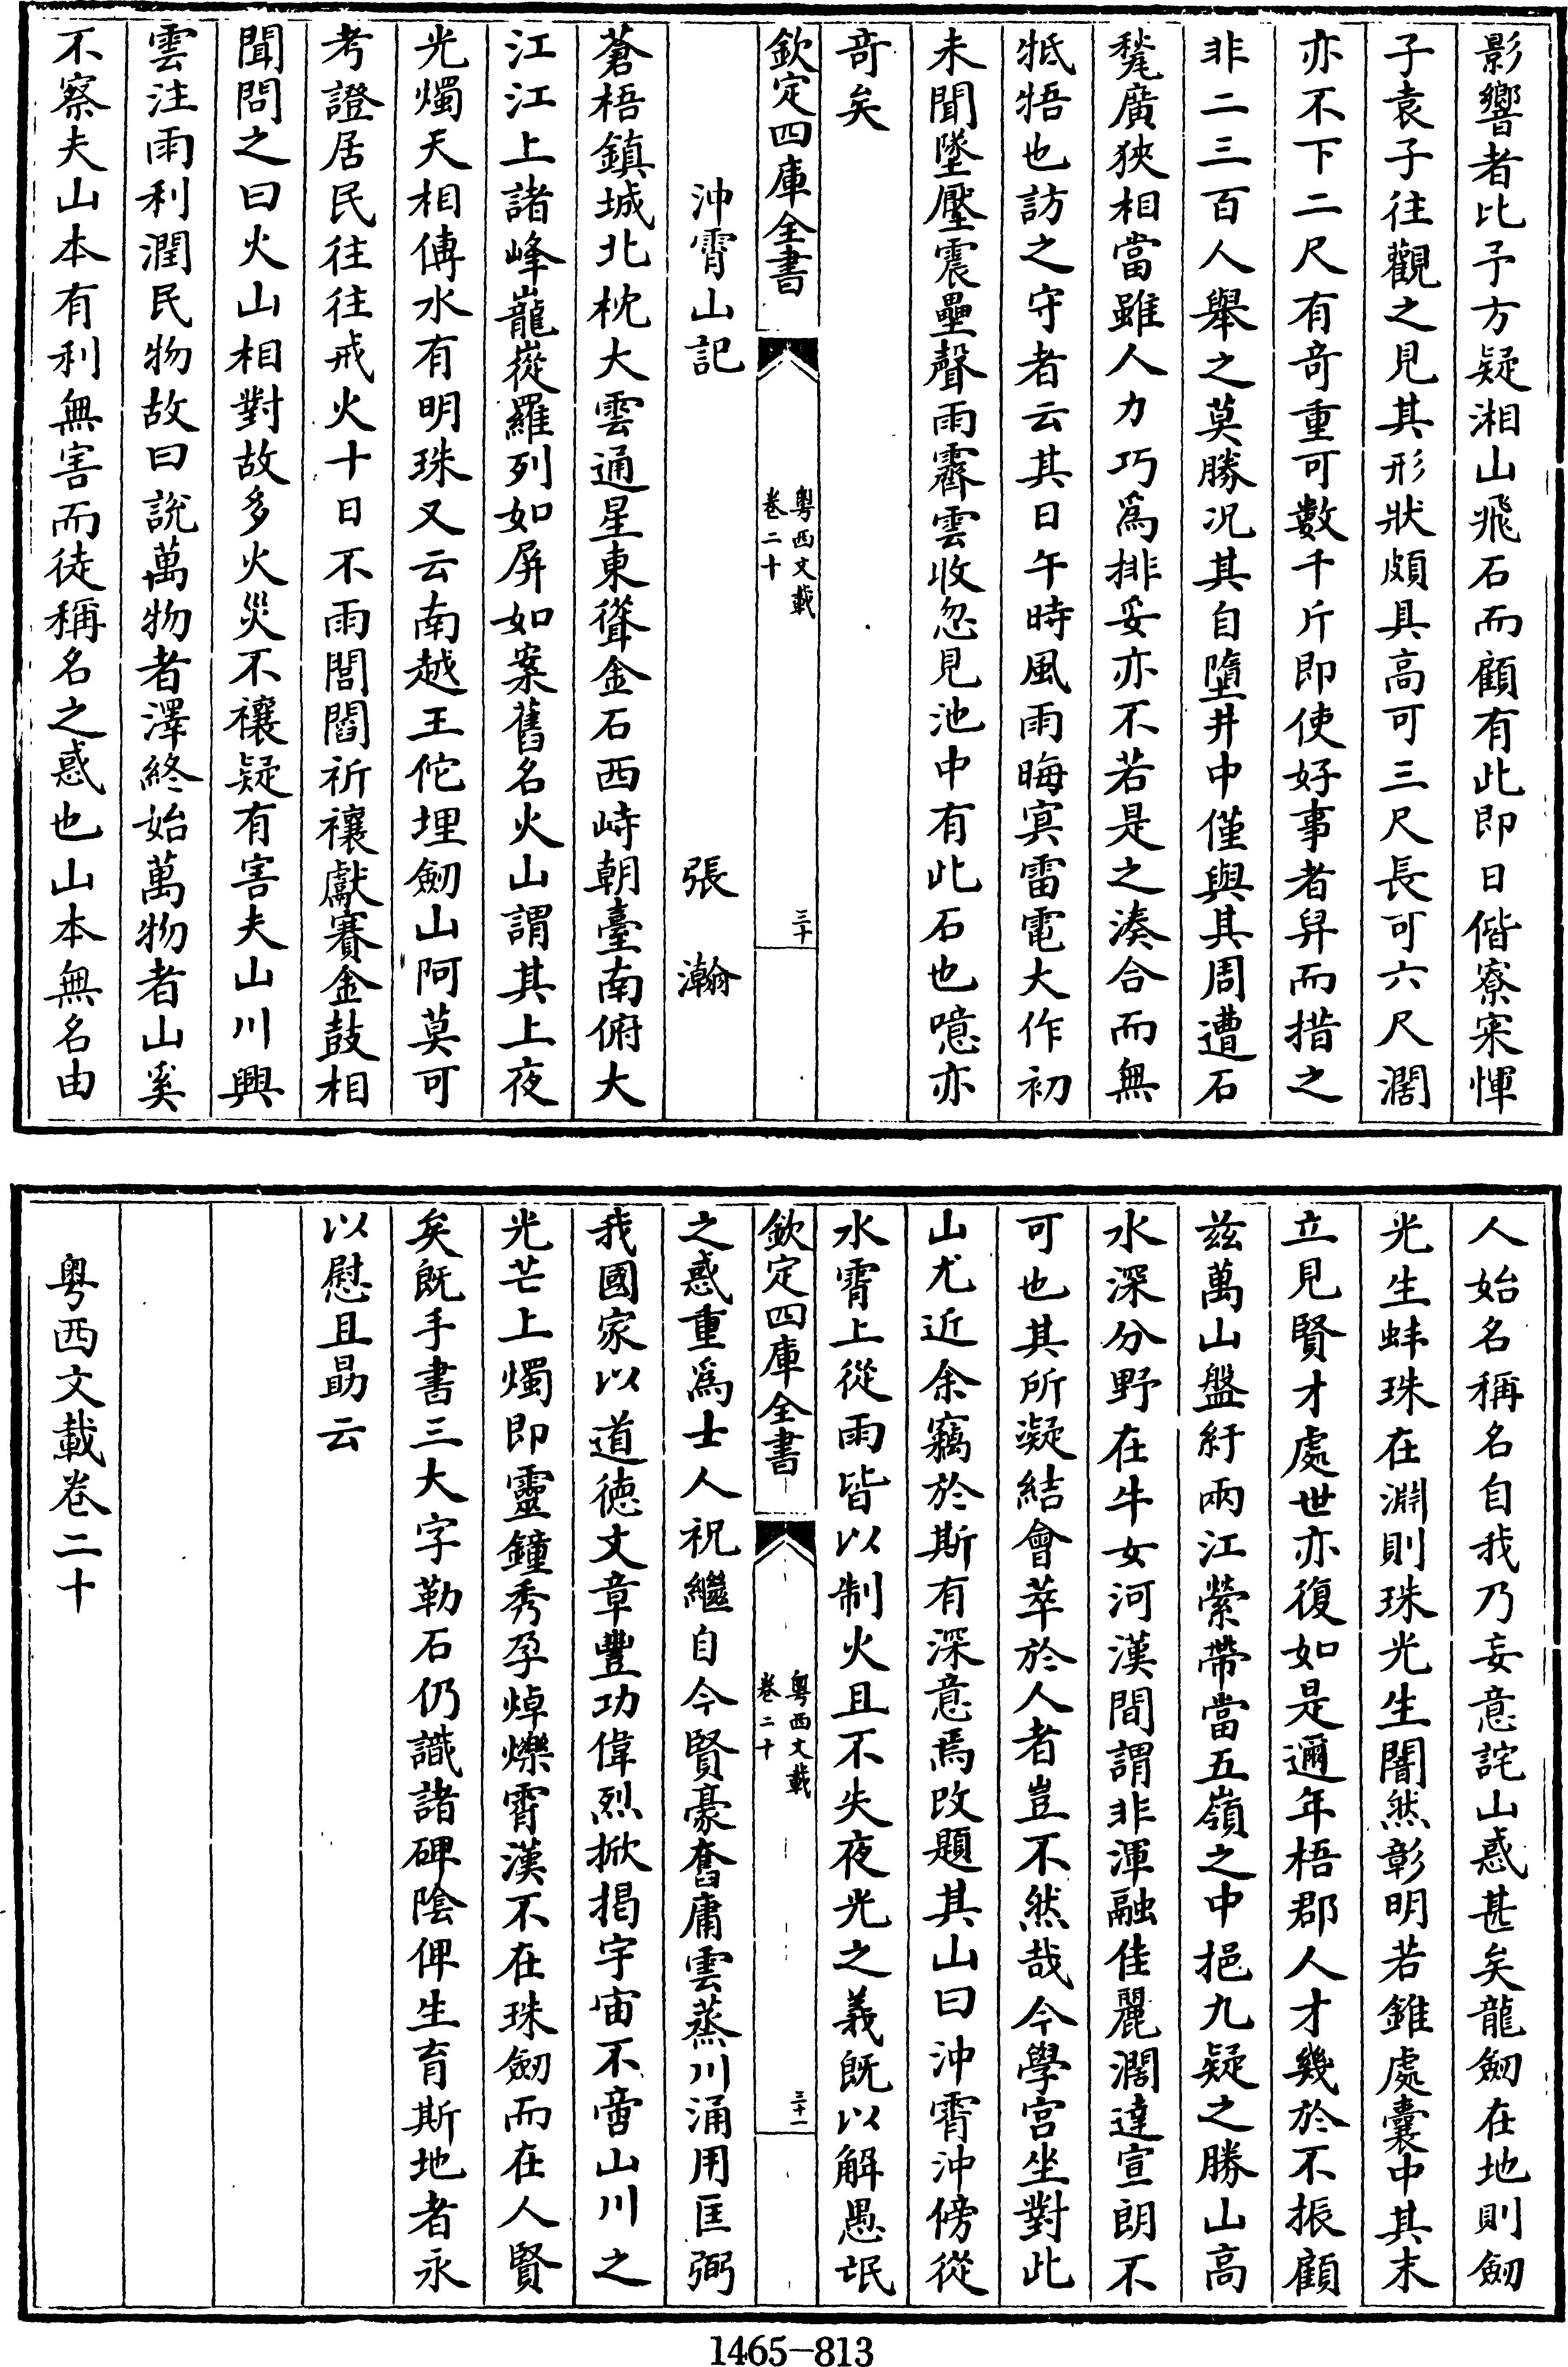 影響者比予方疑湘山飛石而顧有此即日偕寮寀惲
子袁子往觀之見其形狀頗具高可三尺長可六尺濶
亦不下二尺有奇重可數千斤即使好事者舁而措之
非二三百人舉之莫勝况其自墮井中僅與其周遭石
甃廣狹相當雖人力巧爲排妥亦不若是之湊合而無
牴牾也訪之守者云其日午時風雨晦㝠雷電大作初
未聞墜壓震壘聲雨霽雲收忽見池中有此石也噫亦
竒矣
欽定四庫全書
粤西文載
卷二十
三十
沖霄山記
張瀚
蒼梧鎮城北枕大雲通星東聳金石西峙朝臺南俯大
江江上諸峰巃嵸羅列如屏如案舊名火山謂其上夜
光燭天相傳水有明珠又云南越王佗埋劒山阿莫可
考證居民往往戒火十日不雨閭閻祈禳獻賽金鼓相
聞問之曰火山相對故多火災不禳疑有害夫山川興
雲注雨利潤民物故曰説萬物者澤終始萬物者山奚
不察夫山本有利無害而徒稱名之惑也山本無名由
人始名稱名自我乃妄意詫山惑甚矣龍劒在地則劒
光生蚌珠在淵則珠光生闇然彰明若錐處囊中其末
立見賢才處世亦復如是邇年梧郡人才幾於不振顧
兹萬山盤紆兩江縈帶當五嶺之中挹九疑之勝山高
水深分野在牛女河漢間謂非渾融佳麗濶達宣朗不
可也其所凝結會萃於人者豈不然哉今學宫坐對此
山尤近余竊於斯有深意焉改題其山曰沖霄沖傍從
水霄上從雨皆以制火且不失夜光之義既以解愚氓
欽定四庫全書
粤西文載
卷二十
三十一
之惑重爲士人祝繼自今賢豪奮庸雲蒸川涌用匡弼
我國家以道徳文章豐功偉烈掀掲宇宙不啻山川之
光芒上燭即靈鐘秀孕焯爍霄漢不在珠劒而在人賢
矣既手書三大字勒石仍識諸碑陰俾生育斯地者永
以慰且勗云
粤西文載卷二十
1465-813